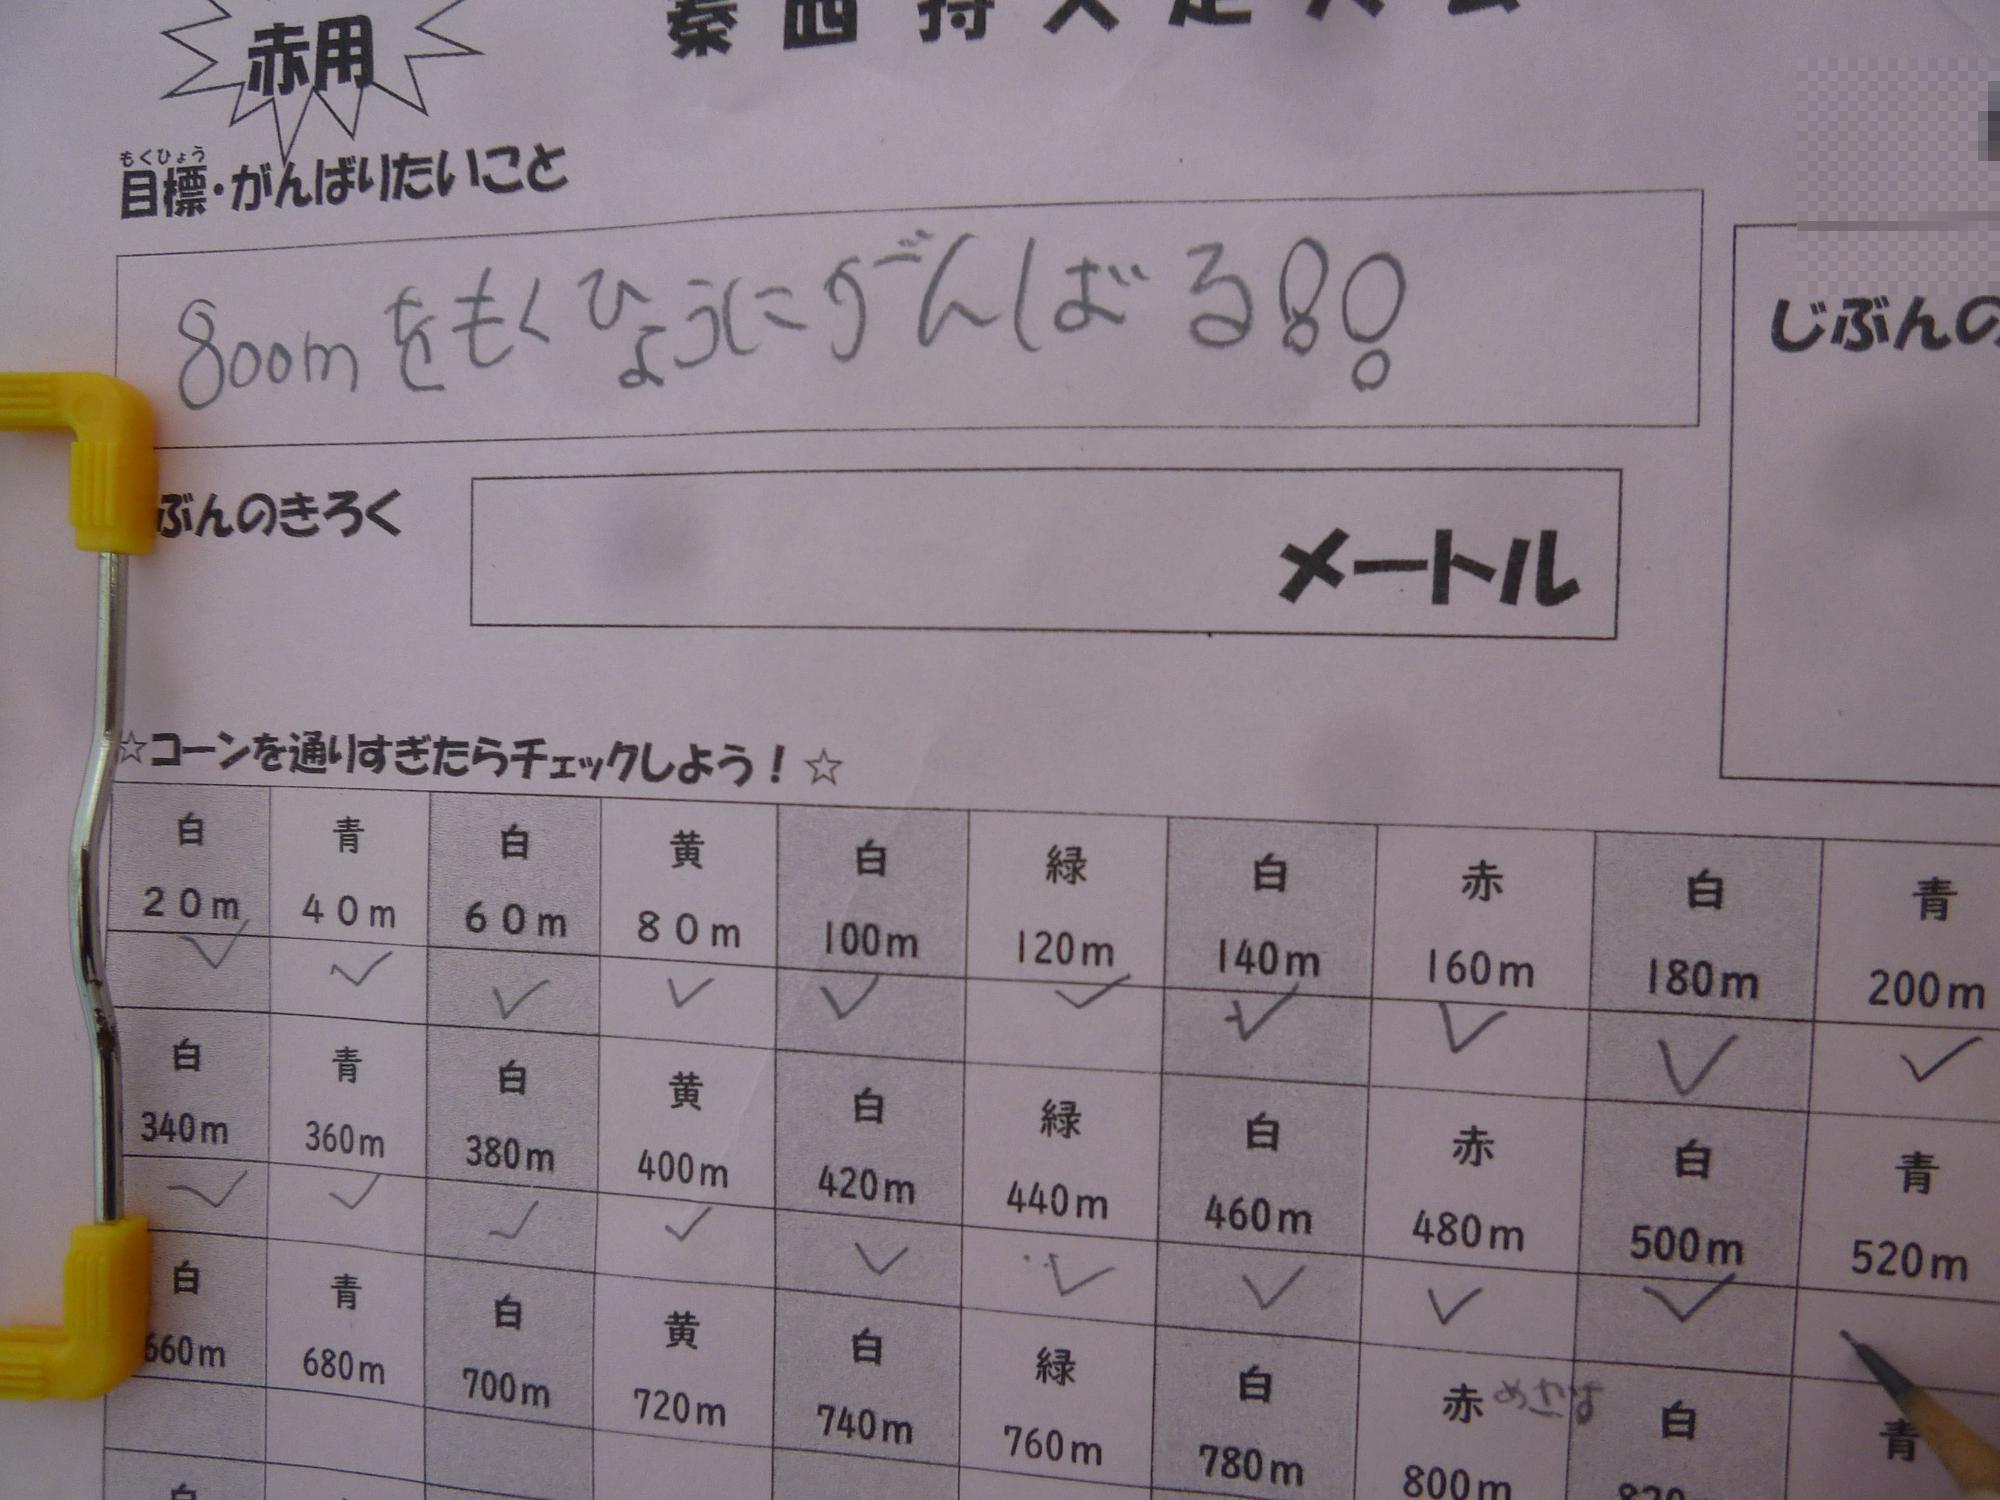 赤用
秦西持久走大会
目標・がんばりたいこと
もくひょう
800mをもくひょうにがんばる!!
じぶんの
ぶんのきろく
メートル
☆コーンを通りすぎたらチェックしよう!☆
白 青 白 黄 白 緑 白 赤 白 青
20m 40m 60m 80m 100m 120m 140m 160m 180m 200m
白 青 白 黄 白 緑 白 赤 白 青
340m 360m 380m 400m 420m 440m 460m 480m 500m 520m
白 青 白 黄 白 緑 白 赤 白 青
660m 680m 700m 720m 740m 760m 780m 800m 820m
白